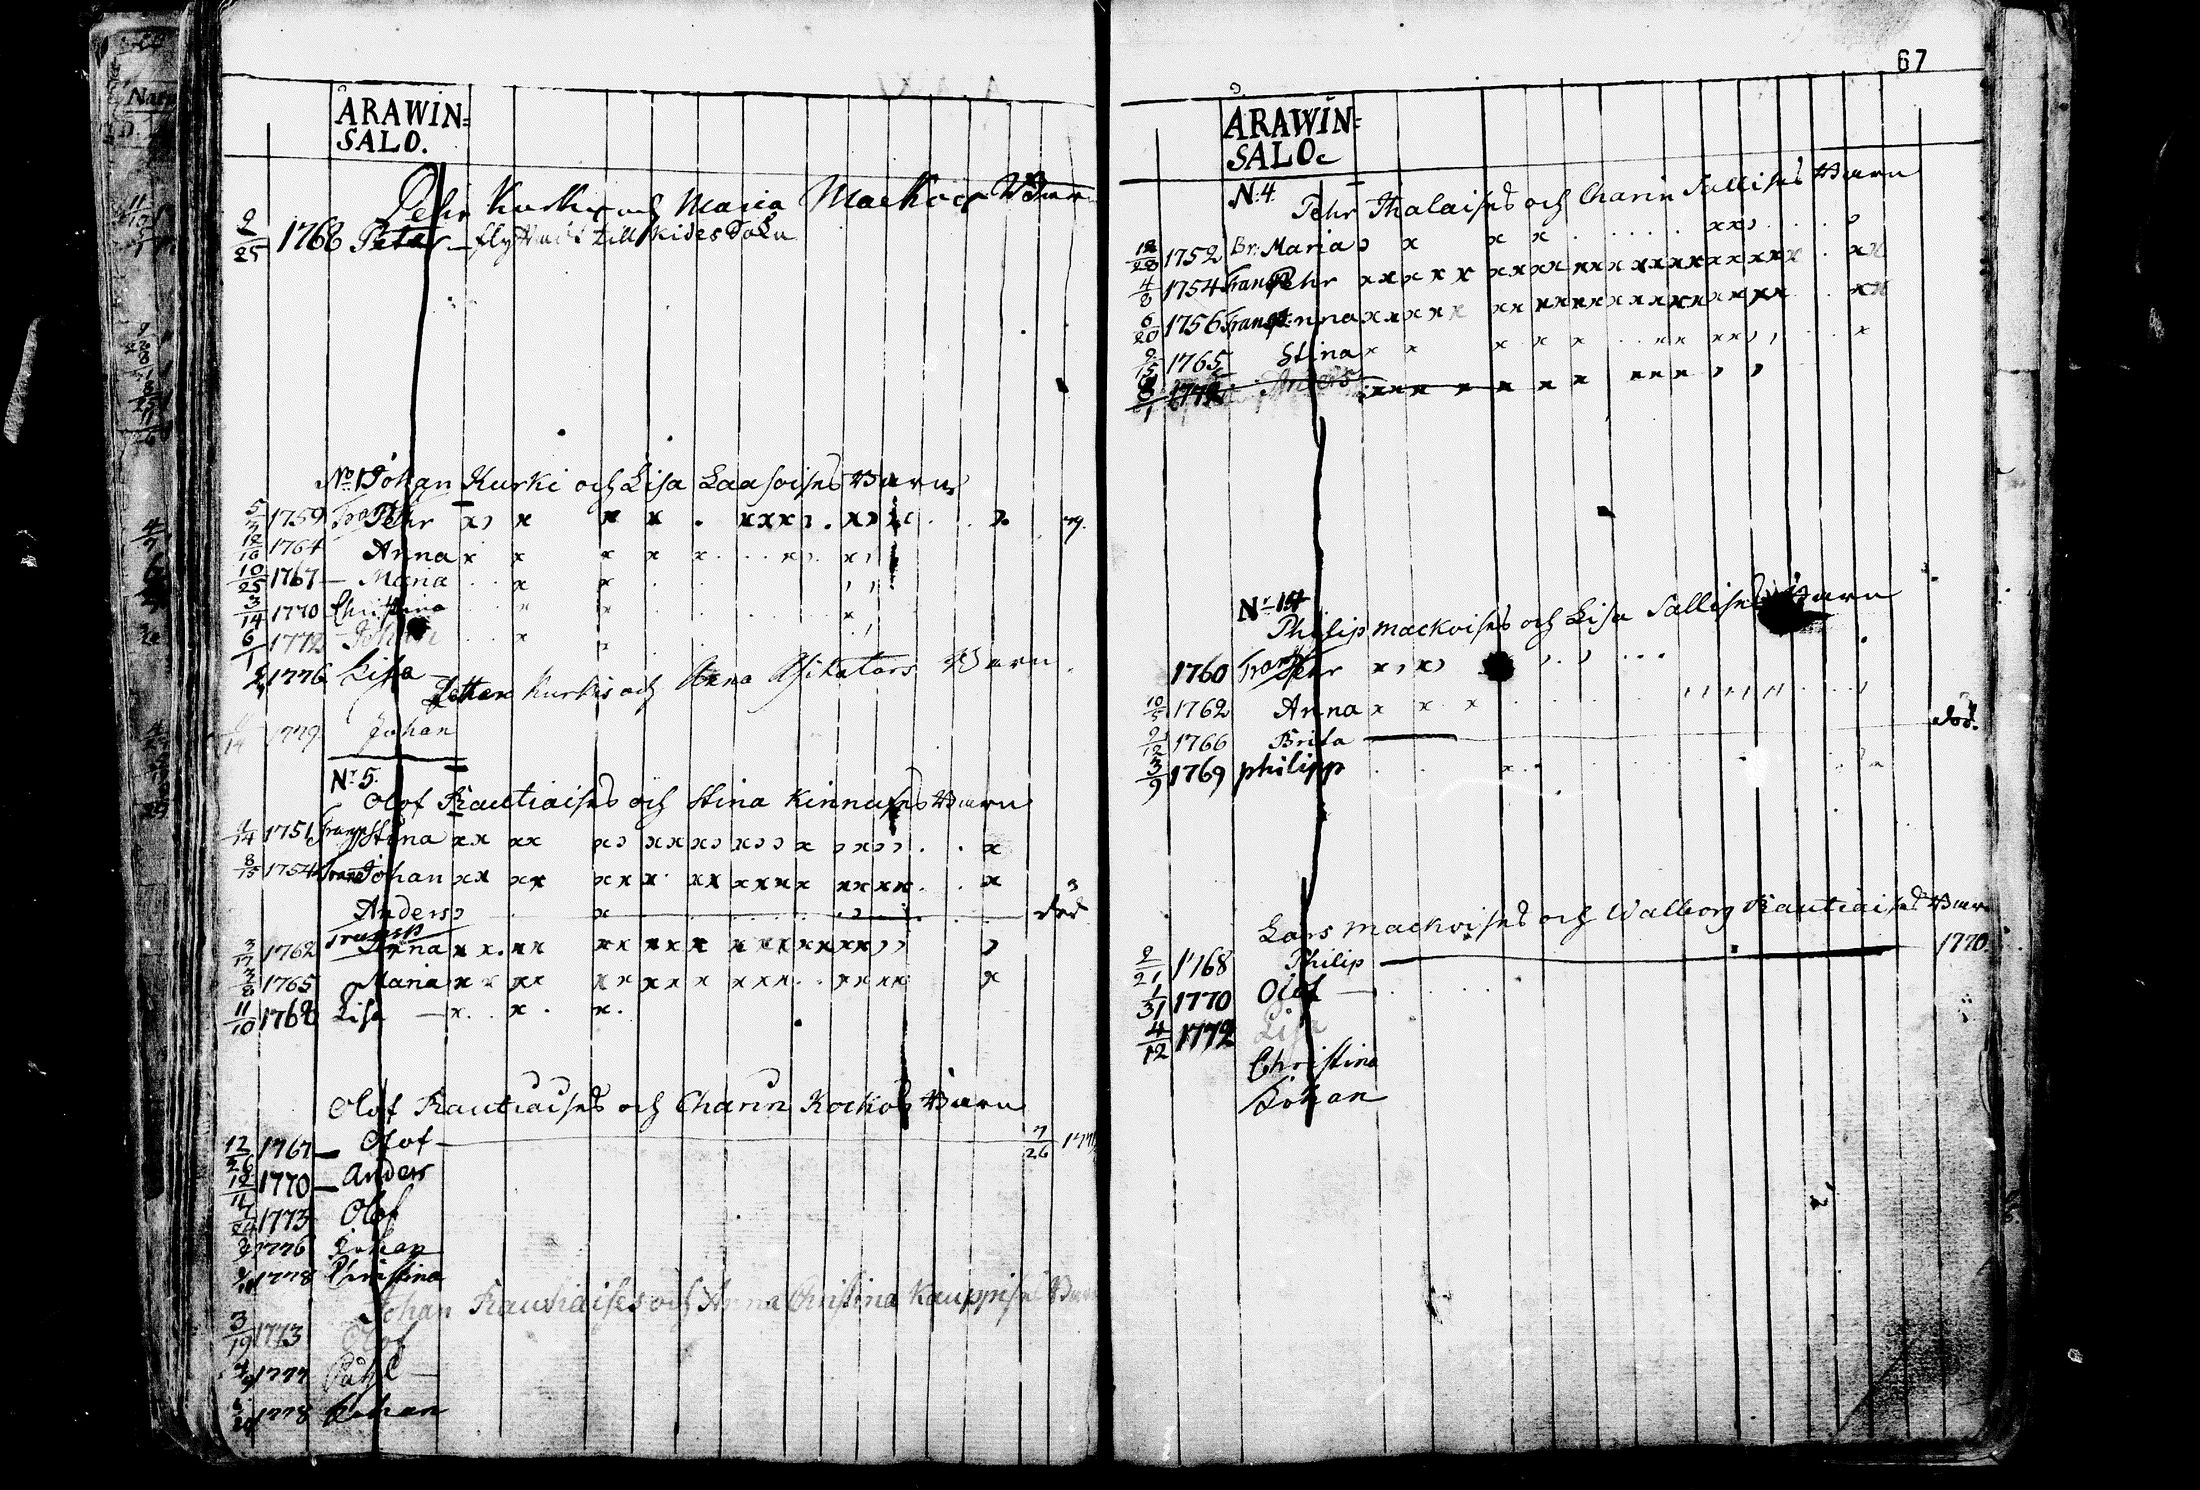 ARAWIN=
SALO.
Pehr Kurki och Maria Mackoin Barn
2/25 1768 Petter — flyttadt till Kides Sokn
No 1 Johan Kurki och Lisa Laasoises Barn
5/3 1759 Transp Pehr
12/10 1764 Anna
10/25 1767 — Maria
3/14 1770 Christina
6/1 1772 Johan
1776 Lisa
Petter Kurkis och Anna Barn
1779 Johan
No 5.
Olof Rautiaises och Stina Kinnuses Barn
1751 Transp Stina
8/15 1754 Transp Johan
Anders död
Transp
3/17 1762 Anna
3/8 1765 Maria
11/10 1768 Lisa
Olof Rautiaises och Charin Kockos Barn
12/26 1767 — Olof — 7/26
12/11 1770 — Anders
1773 Olof
1776 Johan
1778 Christina
Johan Rautiaises och Anna Christina Kauppises Barn
3/19 1773 Olof
1777 Påhl —
1778 Johan
67
ARAWIN=
SALO.
N: 4
Pehr Thalaises och Charin Sallises Barn
12/28 1752 Br: Maria
4/8 1754 Transp Pehr
6/20 1756 Transp Anna
9/15 1765 Stina
8/1 1772 Anders
Nr 14
Philip Mackoises och Lisa Sallises Barn
1760 Transp Pehr
10/5 1762 Anna
9/12 1766 Brita död.
3/9 1769 philipp
Lars Mackoises och Walborg Rautiaises Barn
2/21 1768 Philip 1770
1/31 1770 Olof
4/12 1772 Lisa
Christina
Johan